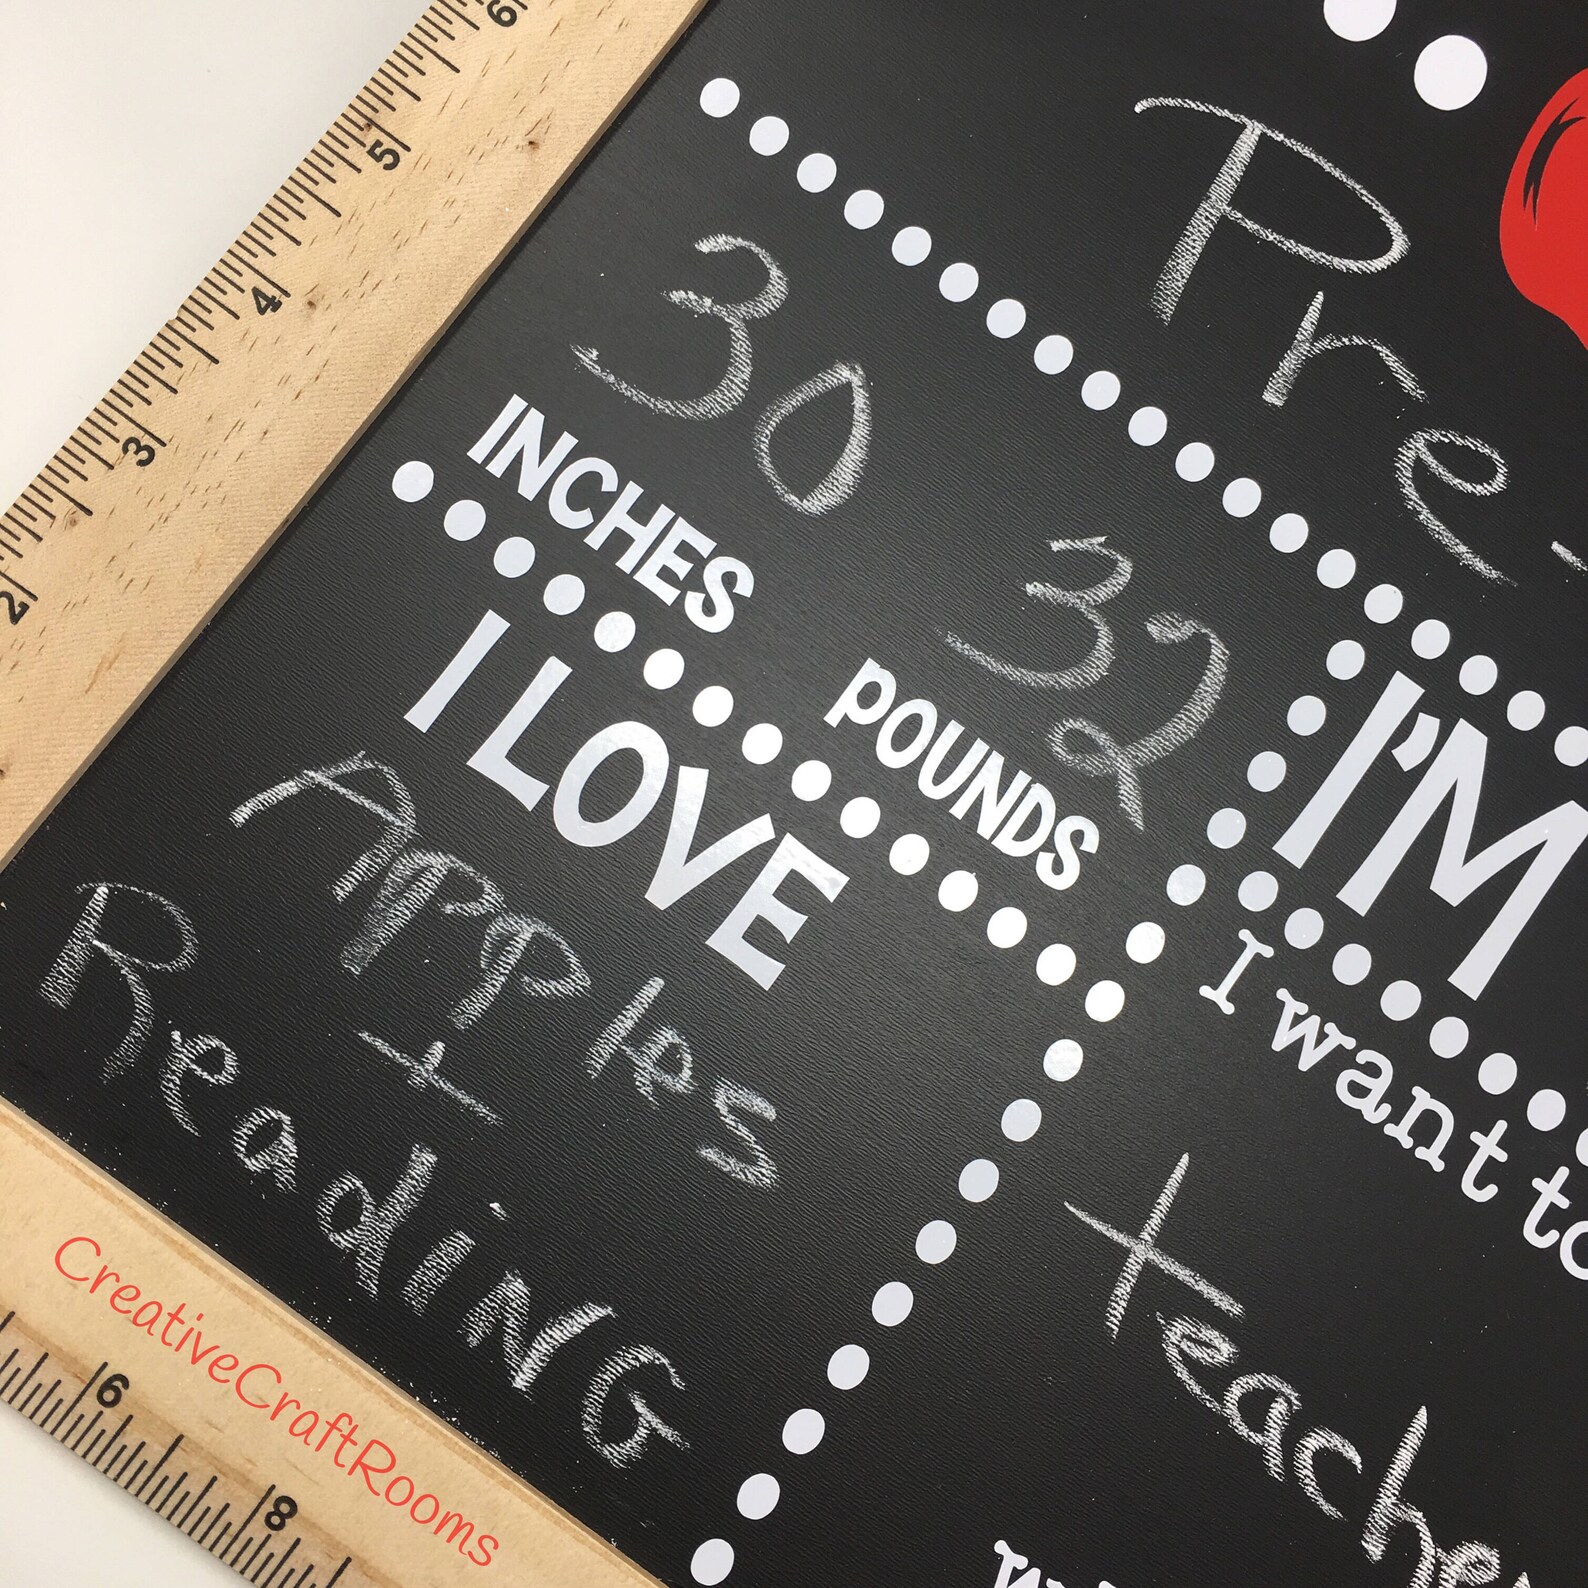 Pre-
30
INCHES
32
POUNDS
I'M
I LOVE
Apples
+
Reading
I want to
teacher
6
5
4
3
2
6
8
CreativeCraftRooms